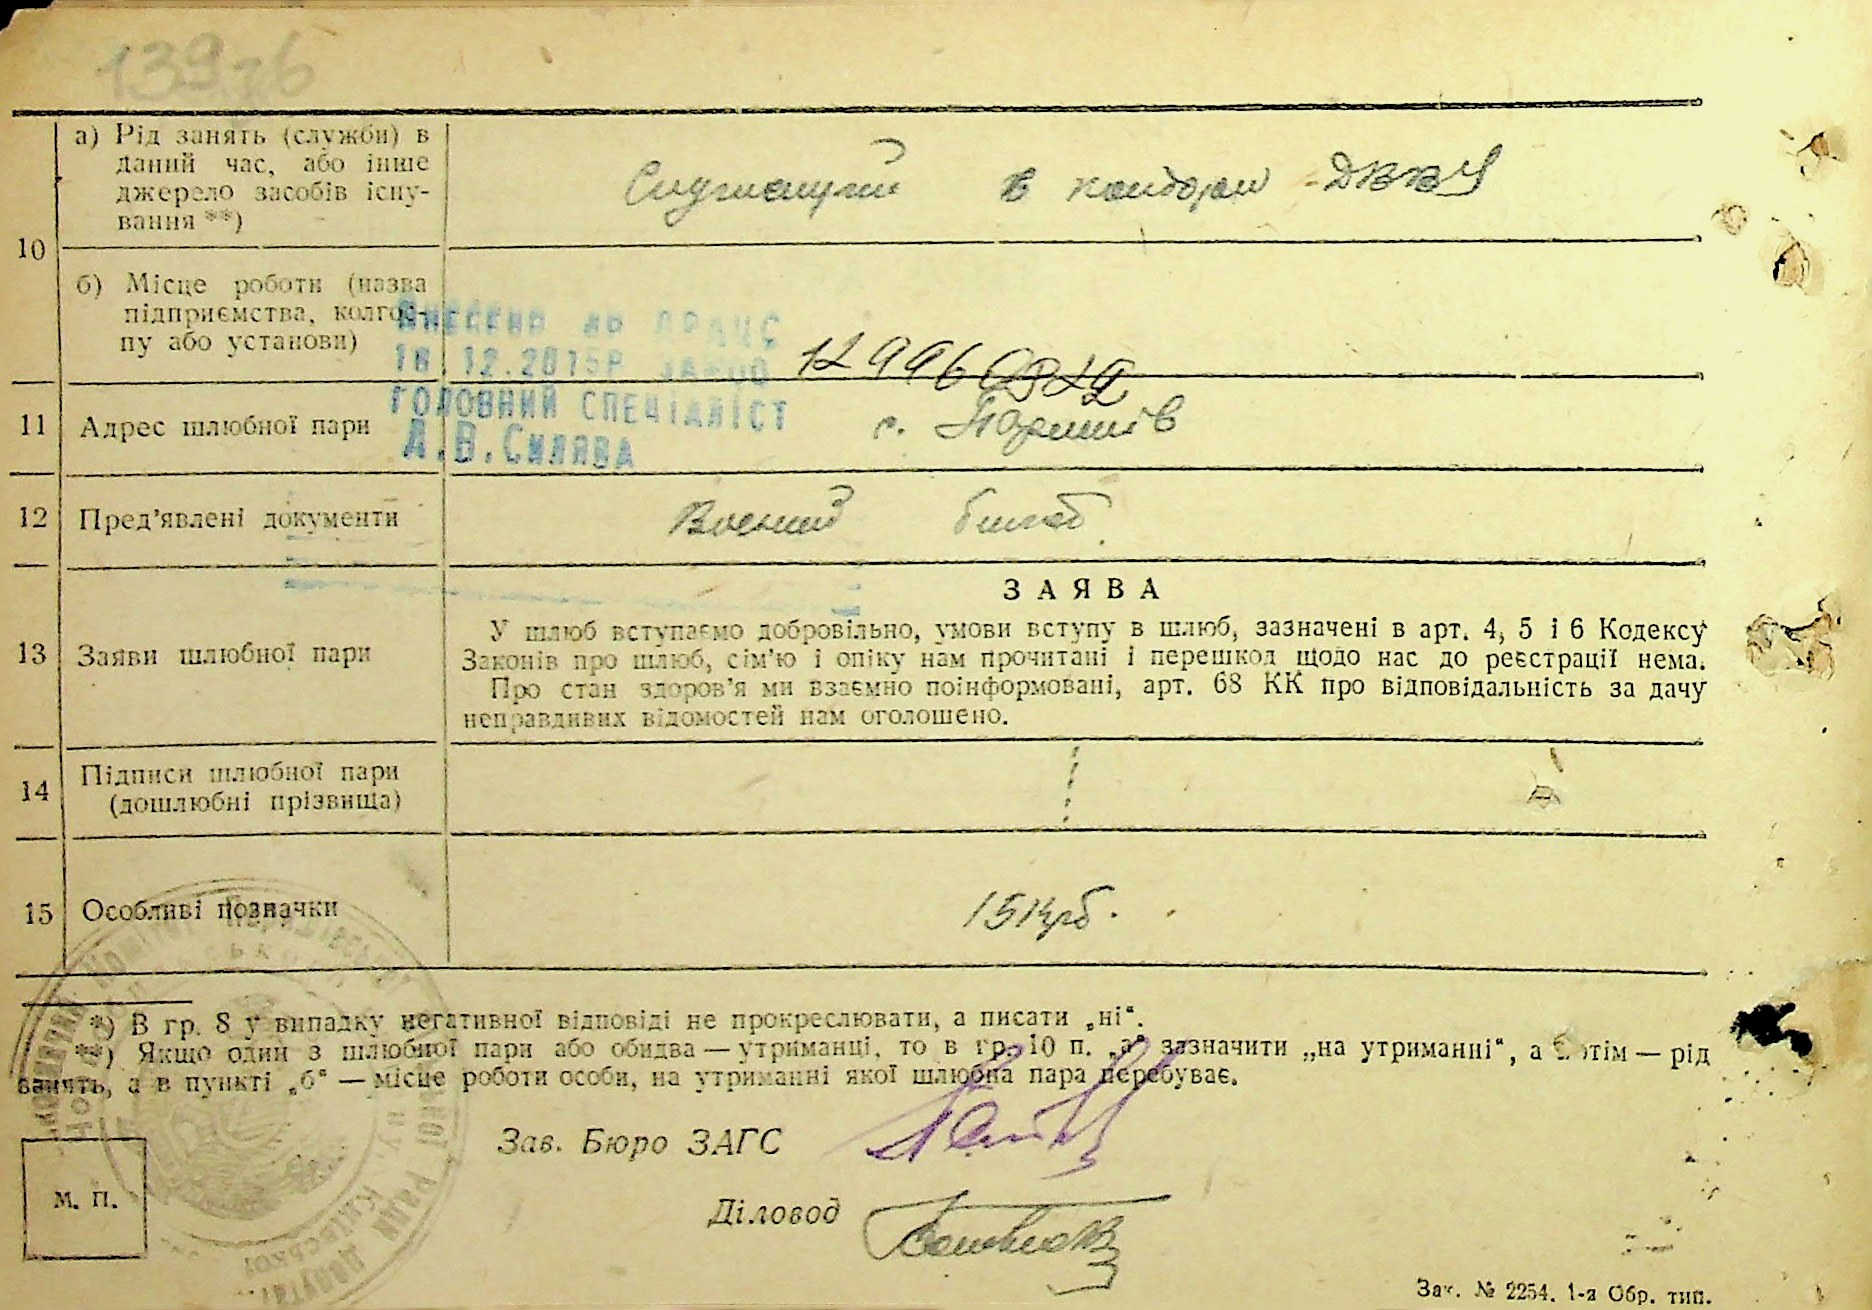 139зб
10
а) Рід занять (служби) в
даний час, або інше
джерело засобів існу-
вання **)
в конторі
б) Місце роботи (назва
підприємства, колгос-
пу або установи)
ВНЕСЕНО ДО ДРАЦС
18.12.2015Р
ГОЛОВНИЙ СПЕЦІАЛІСТ
А.В.Силява
11 Адрес шлюбної пари с. Паришів
12 Пред’явлені документи Воєний билет
13 Заяви шлюбної пари
ЗАЯВА
У шлюб вступаємо добровільно, умови вступу в шлюб, зазначені в арт. 4, 5 і 6 Кодексу
Законів про шлюб, сім’ю і опіку нам прочитані і перешкод щодо нас до реєстрації нема.
Про стан здоров’я ми взаємно поінформовані, арт. 68 КК про відповідальність за дачу
неправдивих відомостей нам оголошено.
14 Підписи шлюбної пари
(дошлюбні прізвища)
15 Особливі позначки 15 крб.
*) В гр. 8 у випадку негативної відповіді не прокреслювати, а писати „ні“.
**) Якщо один з шлюбної пари або обидва — утриманці, то в гр. 10 п. „а“ зазначити „на утриманні“, а потім — рід
занять, а в пункті „б“ — місце роботи особи, на утриманні якої шлюбна пара перебуває.
Зав. Бюро ЗАГС
М. П.
Діловод
Зак. № 2254. 1-а Обр. тип.